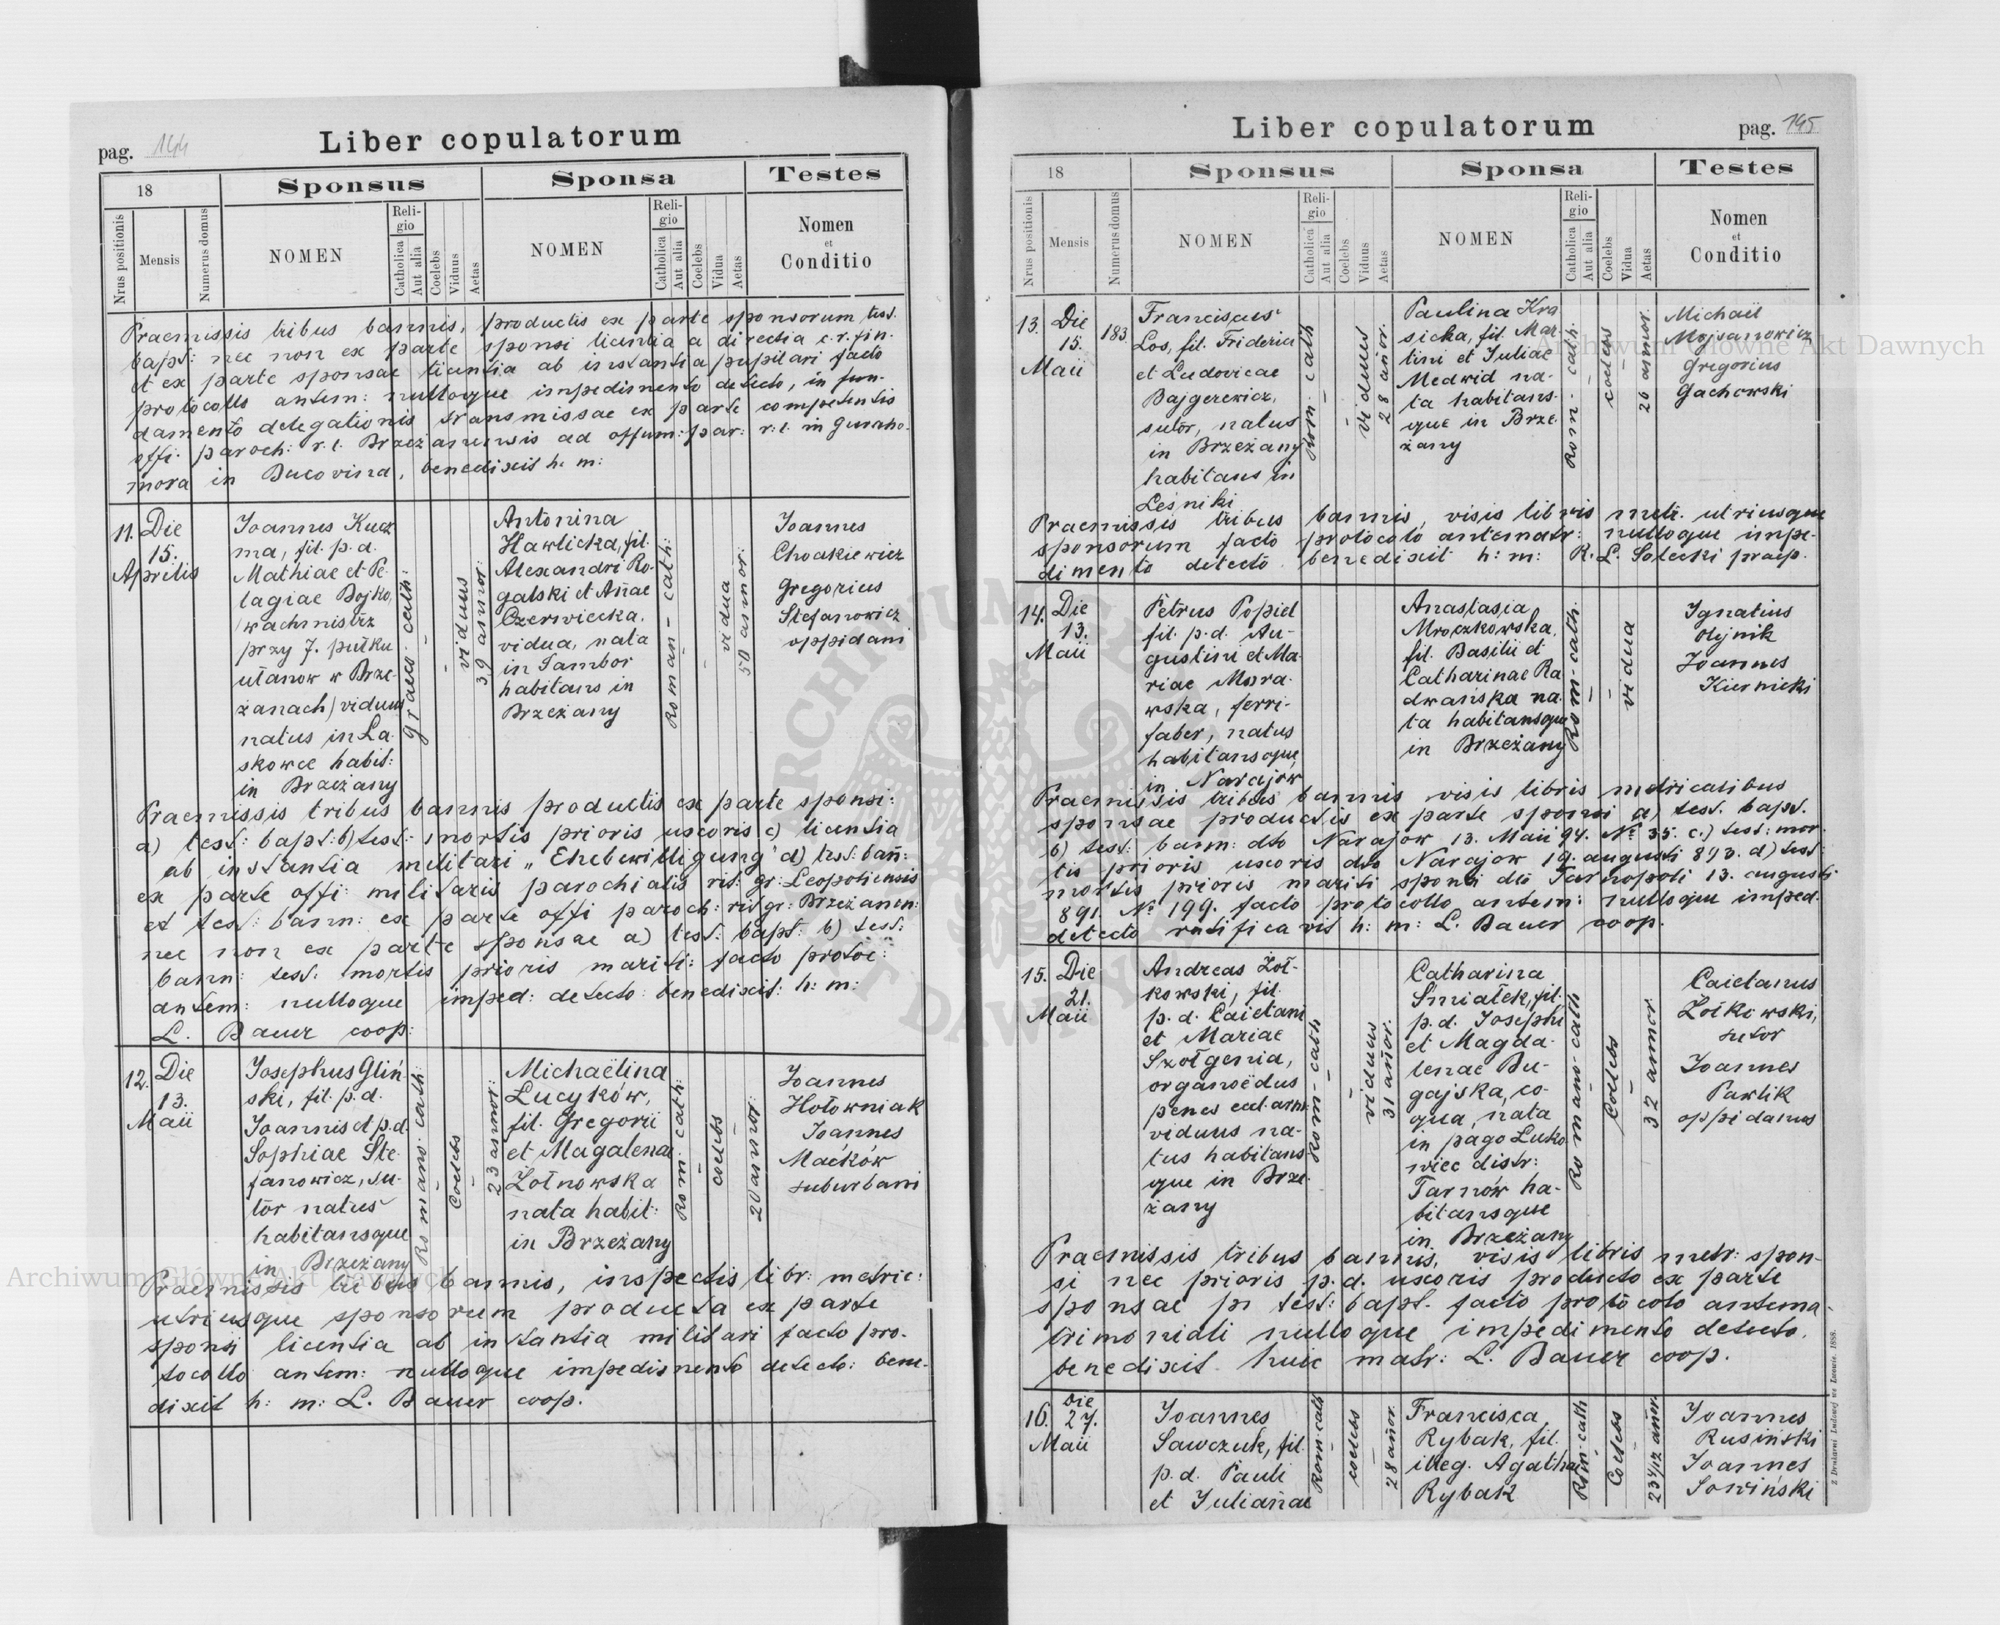 pag. 144
Liber copulatorum
18
Sponsus
Sponsa
Testes
Nrus positionis
Mensis
Numerus domus
NOMEN
Religio
Catholica
Aut alia
Coelebs
Viduus
Aetas
NOMEN
Religio
Catholica
Aut alia
Coelebs
Vidua
Aetas
Nomen
et
Conditio
Praemissis tribus bannis, productis ex parte sponsorum test.
bapt: nec non ex parte sponsi licentia a directia c.r. fin.
et ex parte sponsae licentia ab instantia pupilari facto
protocollo antem: nulloque impedimento detecto, in fun-
damento delegationis transmissae ex parte competentis
offi. paroch: r.l. Brzezanensis ad offum: par: r.l. in Guraho-
mora in Bucovina, benedixit h. m:
11.
Die
15.
Aprilis
Joannes Kucz
ma, fil. p.d.
Mathiae et Pe
lagiae Bojko,
(wachmistrz
przy 7. pułku
ułanow w Brze-
żanach) viduus
natus in La
skowce habit:
in Brzeżany
graec.- cath:
viduus
39 annor:
Antonina
Hawlicka, fil.
Alexandri Ro-
galski et Añae
Czerwiecka,
vidua, nata
in Sambor
habitans in
Brzeżany
Roman - cath:
vidua
50 annor:
Joannes
Choakiewicz
Gregorius
Stefanowicz
oppidani
Praemissis tribus bannis productis ex parte sponsi:
a) test: bapt: b) test: mortis prioris uxoris c) licentia
ab instantia militari „Ehebewilligung" d) test: bañ:
ex parte offi: militaris parochialis rit: gr: Leopoliensis
et test: bann: ex parte offi paroch: rit gr: Brzeżanen:
nec non ex parte sponsae a) test: bapt: b) test:
bann: test: mortis prioris mariti: facto protoc:
antem: nulloque imped: detecto: benedixit: h: m:
L. Bauer coop:
12.
Die
13.
Maii
Josephus Gliń
ski, fil. p.d.
Joannis et p.d.
Sophiae Ste-
fanowicz, su-
tor natus
habitansque
in Brzeżany
Romano. cath:
Coelebs
23 annor:
Michaëlina
Lucyków,
fil. Gregorii
et Magalenae
Żołnowska
nata habit:
in Brzeżany
Rom. cath:
coelebs
20 annor:
Joannes
Hołowniak
Joannes
Maćków
suburbani
Praemissis tribus bannis, inspectis libr: metric:
utriusque sponsorum producta ex parte
sponsi licentia ab instantia militari facto pro-
tocollo antem: nulloque impedimento detecto: bene-
dixit h: m: L. Bauer coop.
Liber copulatorum
pag. 145
18
Sponsus
Sponsa
Testes
Nrus positionis
Mensis
Numerus domus
NOMEN
Religio
Catholica
Aut alia
Coelebs
Viduus
Aetas
NOMEN
Religio
Catholica
Aut alia
Coelebs
Vidua
Aetas
Nomen
et
Conditio
13.
Die
15.
Maii
183.
Franciscus
Los, fil. Friderici
et Ludovicae
Bajgerewicz,
sutor, natus
in Brzeżany
habitans in
Leśniki
Rom. - cath
viduus
28 añor.
Paulina Kra
sicka, fil. Mar-
tini et Juliae
Medwid na-
ta habitans-
que in Brze-
żany
Rom - cath:
coelebs
26 annor.
Michaël
Mojsanowicz
Gregorius
Gachowski
Praemissis tribus bannis, visis libris metr. utriusque
sponsorum facto protocolo antematr: nulloque impe-
dimento detecto. benedixit h: m: R. L. Solecki praep.
14.
Die
13.
Maii
Petrus Popiel
fil. p.d. Au-
gustini et Ma-
riae Mora-
wska, ferri-
faber, natus
habitansque
in Narajow
Anastasia
Mroczkowska,
fil. Basilii et
Catharinae Ra
dwańska na-
ta habitansque
in Brzeżany
Rom - cath.
vidua
Ignatius
Olijnik
Joannes
Kiernicki
Praemissis tribus bannis visis libris metricalibus
sponsae productis ex parte sponsi a) test. bapt.
b) test: bann: dto Narajow 13. Maii 94. No 35. c.) test: mor-
tis prioris uxoris dto Narajow 19. augusti 893. d) test:
mortis prioris mariti sponsi dto Tarnopoli 13. augusti
891. No 199. facto protocollo antem: nulloque imped.
detecto ratificavit h: m: L. Bauer coop.
15.
Die
21.
Maii
Andreas Żoł-
kowski, fil.
p.d. Caietani
et Mariae
Szołgenia,
organoëdus
penes
viduus na-
tus habitans-
que in Brze-
żany
Rom - cath
viduus
31 añor.
Catharina
Smiałek, fil.
p.d. Josephi
et Magda-
lenae Bu-
gajska, co-
qua, nata
in pago Luko
wiec distr:
Tarnów ha-
bitansque
in Brzeżany
Romano - cath
Coelebs
32 annor.
Caietanus
Żołkowski,
sutor
Joannes
Pawlik
oppidanus
Praemissis tribus bannis, visis libris metr: spon-
si nec prioris p.d. uxoris producto ex parte
sponsae pr test: bapt. facto protocolo antema-
trimoniali nulloque impedimento detecto.
benedixit huic matr: L. Bauer coop.
16.
Die
27.
Maii
Joannes
Sawczuk, fil.
p.d. Pauli
et Julianae
Rom - cath
coelebs
28 añor.
Francisca
Rybak, fil.
illeg. Agathae
Rybak
Rom - cath
Coelebs
23 4/12 añor.
Joannes
Rusiński
Joannes
Sowiński
Z Drukarni Ludowej we Lwowie. 1888.
Archiwum Główne Akt Dawnych
Archiwum Główne Akt Dawnych